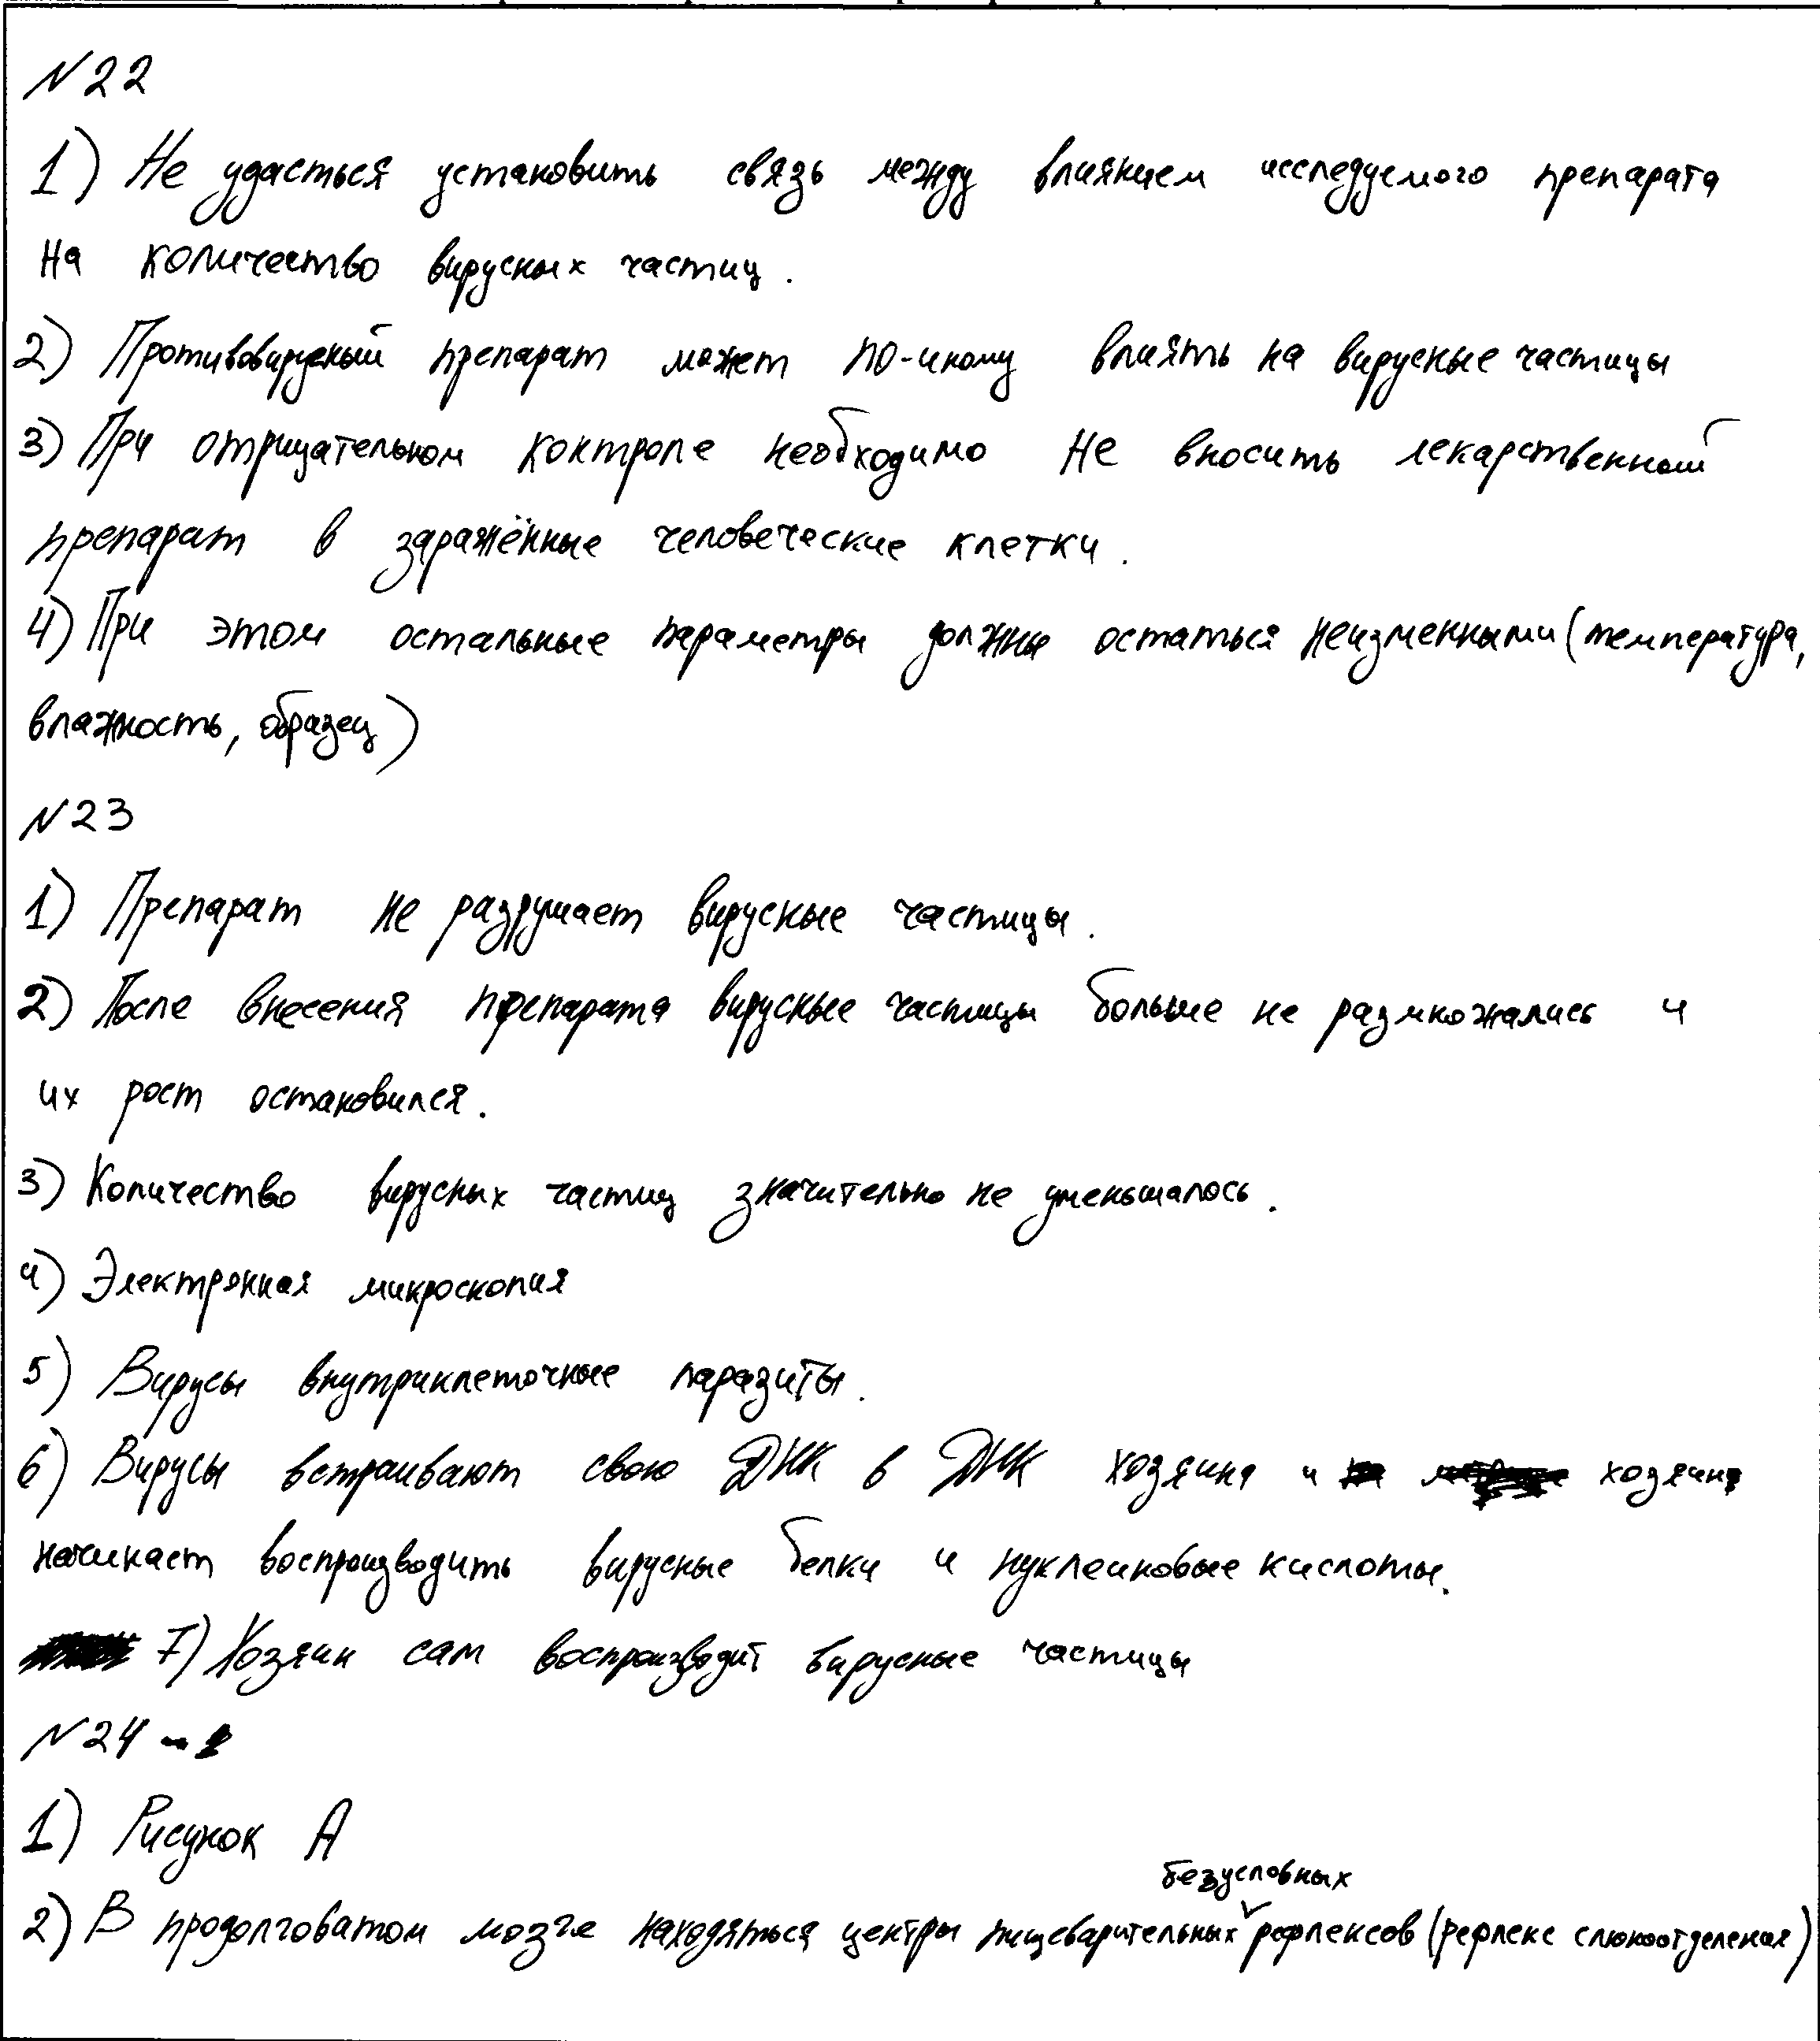 N22
1) Не удасться установить связь между влиянием исследуемого препарата
на количество вирусных частиц.
2) Противовирусный препарат может по-иному влиять на вирусные частицы
3) При отрицательном контроле необходимо не вносить лекарственный
препарат в заражённые человеческие клетки.
4) При этом остальные параметры должны остаться неизменными (температура,
влажность, образец)
N23
1) Препарат не разрушает вирусные частицы.
2) После внесения препарата вирусные частицы больше не размножались и
их рост остановился.
3) Количество вирусных частиц значительно не уменьшалось.
4) Электронная микроскопия
5) Вирусы внутриклеточные паразиты.
6) Вирусы встраивают свою ДНК в ДНК хозяина и хозяин
начинает воспроизводить вирусные белки и нуклеиновые кислоты.
7) Хозяин сам воспроизводит вирусные частицы
N24
1) Рисунок А
безусловных
2) В продолговатом мозге находяться центры пищеварительных рефлексов (рефлекс слюноотделения)